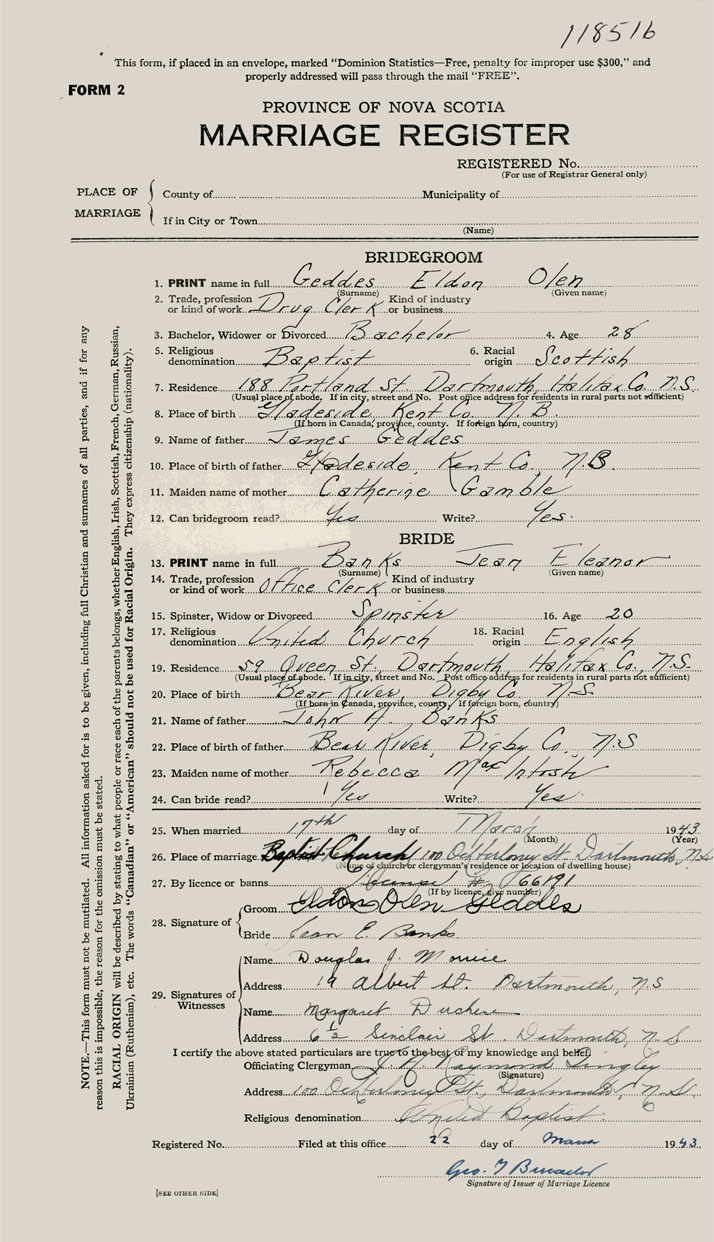 118516
This form, if placed in an envelope, marked "Dominion Statistics—Free, penalty for improper use $300," and
properly addressed will pass through the mail "FREE".
FORM 2
PROVINCE OF NOVA SCOTIA
MARRIAGE REGISTER
REGISTERED No.
(For use of Registrar General only)
PLACE OF MARRIAGE
County of Municipality of
If in City or Town
(Name)
BRIDEGROOM
1. PRINT name in full Geddes Eldon Olen
(Surname) (Given name)
2. Trade, profession or kind of work Drug Clerk Kind of industry or business
3. Bachelor, Widower or Divorced Bachelor 4. Age 28
5. Religious denomination Baptist 6. Racial origin Scottish
7. Residence 188 Portland St. Dartmouth, Halifax Co. N.S.
(Usual place of abode. If in city, street and No. Post office address for residents in rural parts not sufficient)
8. Place of birth Gladeside, Kent Co. N.B.
(If born in Canada, province, county. If foreign born, country)
9. Name of father James Geddes
10. Place of birth of father Gladeside, Kent Co. N.B.
11. Maiden name of mother Catherine Gamble
12. Can bridegroom read? Yes Write? Yes.
BRIDE
13. PRINT name in full Banks Jean Eleanor
(Surname) (Given name)
14. Trade, profession or kind of work Office Clerk Kind of industry or business
15. Spinster, Widow or Divorced Spinster 16. Age 20
17. Religious denomination United Church 18. Racial origin English
19. Residence 59 Queen St., Dartmouth, Halifax Co., N.S.
(Usual place of abode. If in city, street and No. Post office address for residents in rural parts not sufficient)
20. Place of birth Bear River, Digby Co. N.S.
(If born in Canada, province, county, If foreign born, country)
21. Name of father John H. Banks
22. Place of birth of father Bear River, Digby Co., N.S
23. Maiden name of mother Rebecca MacIntosh
24. Can bride read? Yes Write? Yes
25. When married 17th day of March 1943
(Month) (Year)
26. Place of marriage Baptist Church 100 Ochterloney St. Dartmouth, N.S
(Name of church or clergyman's residence or location of dwelling house)
27. By licence or banns license # J66191
(If by licence, give number)
28. Signature of
Groom Eldon Olen Geddes
Bride Jean E Banks
29. Signatures of Witnesses
Name Douglas J. Morrice
Address 19 Albert St. Dartmouth, N.S
Name Margaret
Address 6 1/2 Sinclair St. Dartmouth, N.S
I certify the above stated particulars are true to the best of my knowledge and belief.
Officiating Clergyman J. H. Raymond
(Signature)
Address 100 Ochterloney St., Dartmouth, N.S.
Religious denomination United Baptist.
Registered No. Filed at this office 22 day of March 1943
Geo. T
Signature of Issuer of Marriage Licence
[SEE OTHER SIDE]
NOTE.—This form must not be mutilated. All information asked for is to be given, including full Christian and surnames of all parties, and if for any
reason this is impossible, the reason for the omission must be stated.
RACIAL ORIGIN will be described by stating to what people or race each of the parents belongs, whether English, Irish, Scottish, French, German, Russian,
Ukrainian (Ruthenian), etc. The words "Canadian" or "American" should not be used for Racial Origin. They express citizenship (nationality).